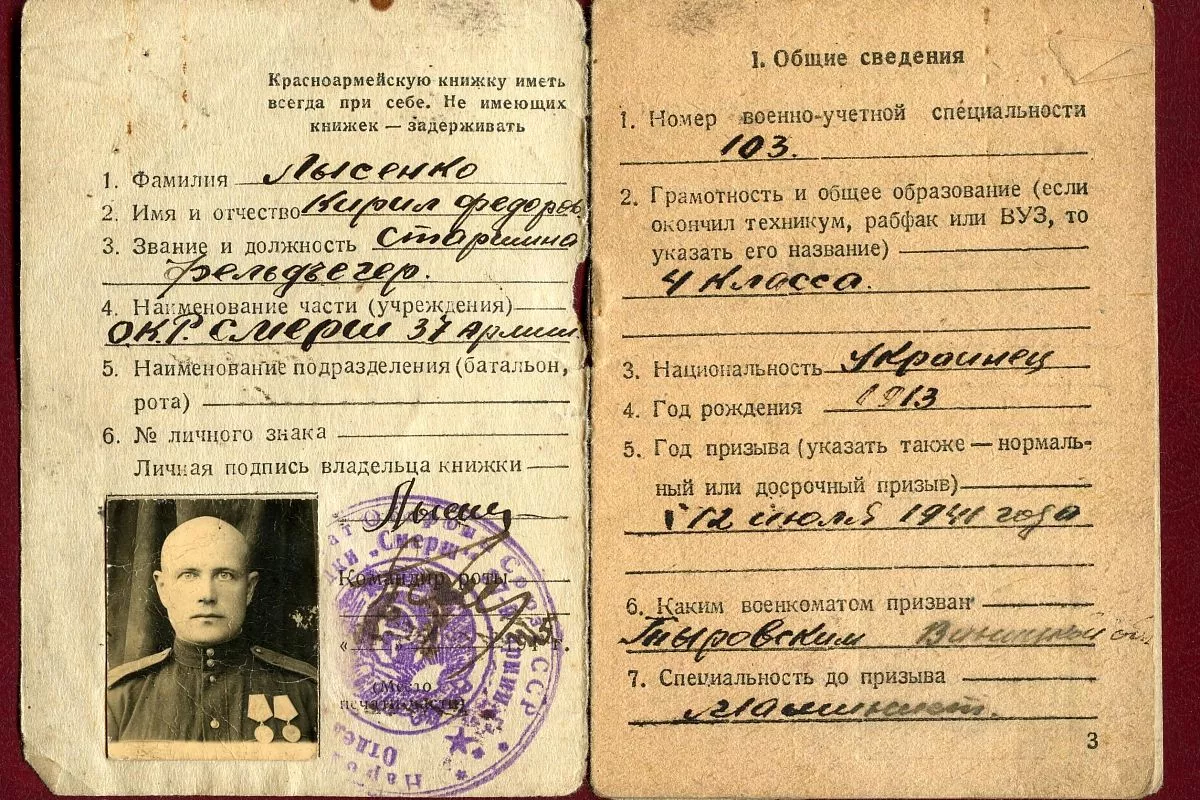 Красноармейскую книжку иметь
всегда при себе. Не имеющих
книжек — задерживать
1. Фамилия Лысенко
2. Имя и отчество Кирил Федоров
3. Звание и должность Старшина
Фельдъегер.
4. Наименование части (учреждения)
О.К.Р. Смерш 37 Армии.
5. Наименование подразделения (батальон,
рота)
6. № личного знака
Личная подпись владельца книжки
Командир роты
(Место
печати части)
„Смерш“
СССР
I. Общие сведения
1. Номер военно-учетной специальности
103.
2. Грамотность и общее образование (если
окончил техникум, рабфак или ВУЗ, то
указать его название)
4 класса.
3. Национальность Украинец
4. Год рождения 1913
5. Год призыва (указать также — нормаль-
ный или досрочный призыв)
12 июля 1941 года
6. Каким военкоматом призван
7. Специальность до призыва
Машинист.
3